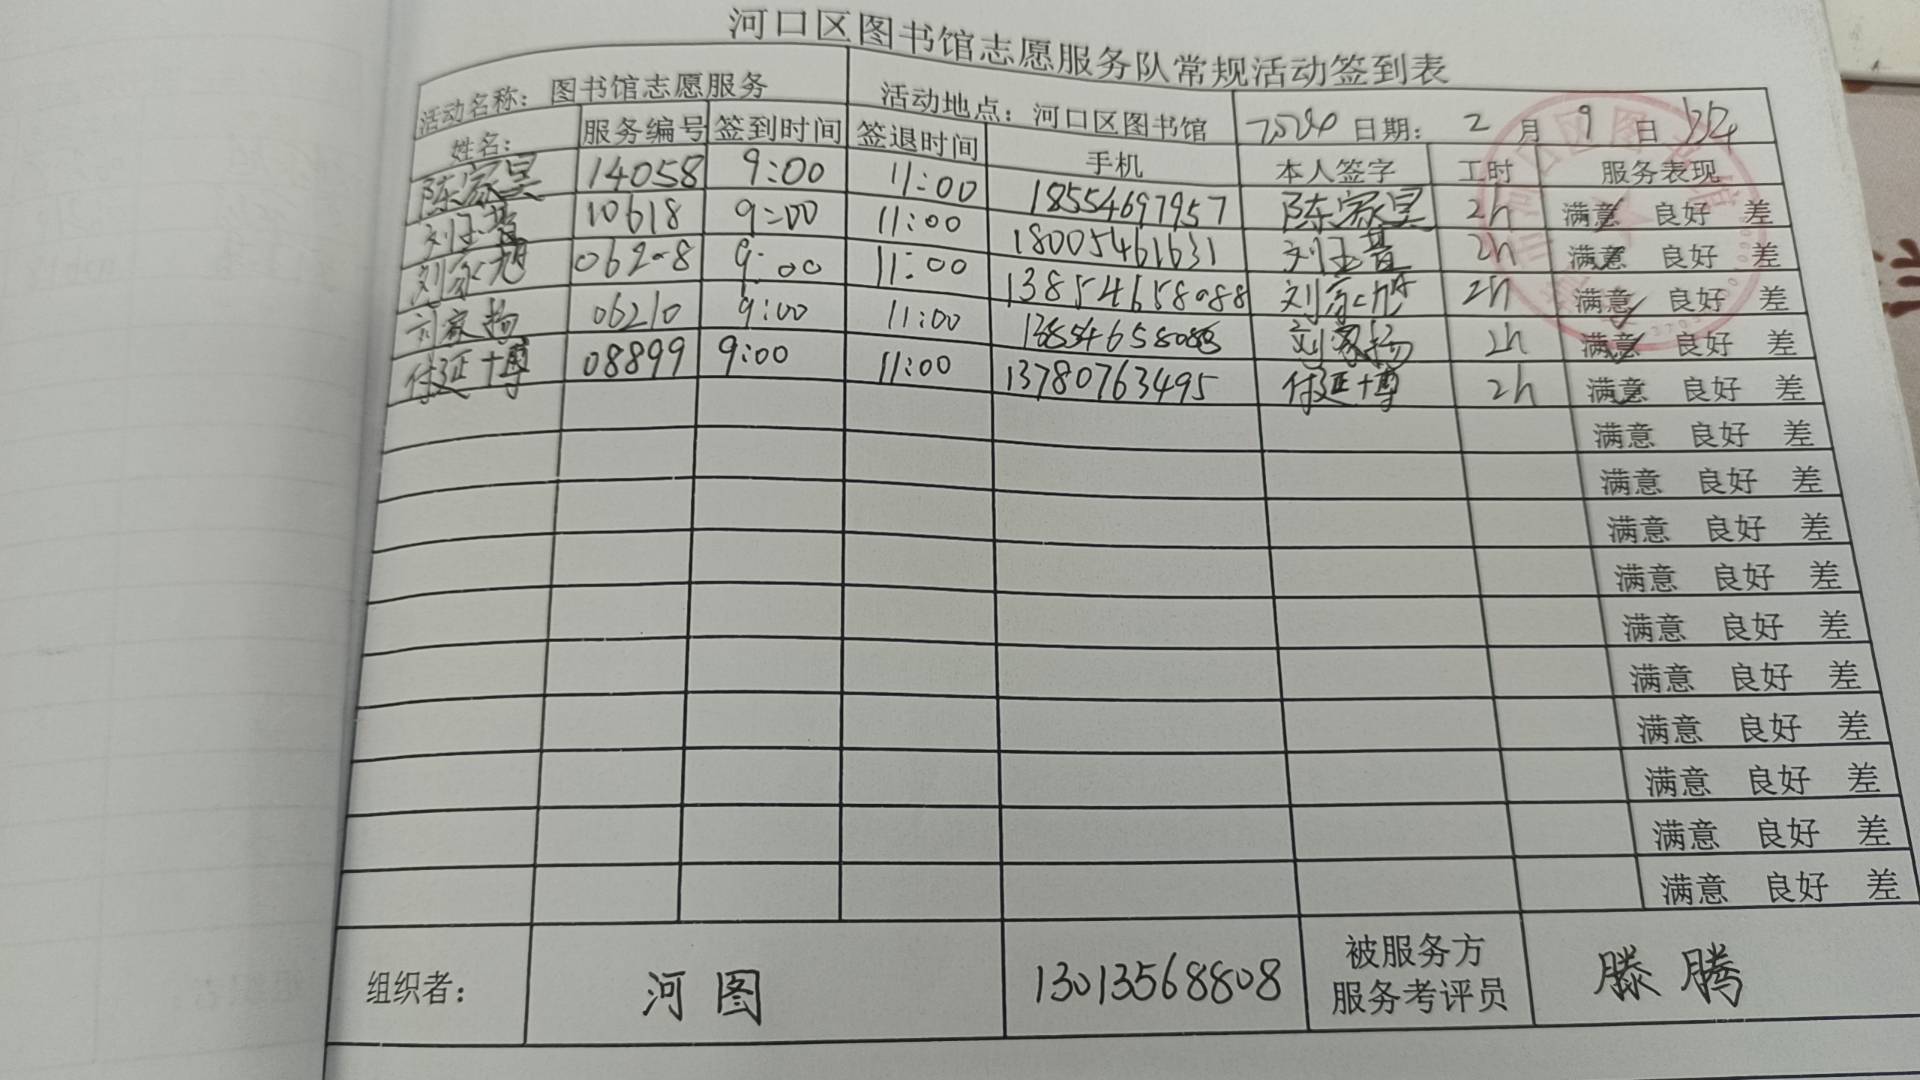 河口区图书馆志愿服务队常规活动签到表
活动名称：图书馆志愿服务 活动地点：河口区图书馆 日期： 2 月 9 日
姓名： 服务编号 签到时间 签退时间 手机 本人签字 工时 服务表现
陈家昊 14058 9:00 11:00 18554697957 陈家昊 2h 满意 良好 差
刘玉菩 10618 9:00 11:00 18005461631 2h 满意 良好 差
刘家旭 06208 9:00 11:00 13854658088 2h 满意 良好 差
刘家扬 06210 9:00 11:00 13854658088 刘家扬 2h 满意 良好 差
付延博 08899 9:00 11:00 13780763495 付延博 2h 满意 良好 差
满意 良好 差
满意 良好 差
满意 良好 差
满意 良好 差
满意 良好 差
满意 良好 差
满意 良好 差
满意 良好 差
满意 良好 差
满意 良好 差
组织者： 河图 13013568808 被服务方 滕腾
服务考评员